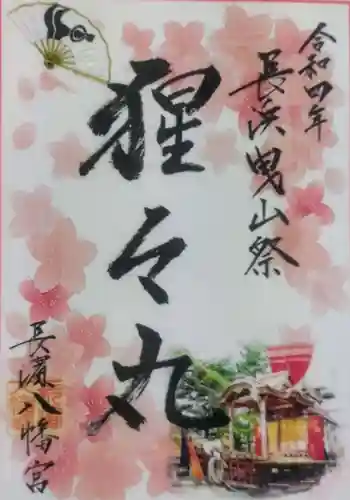 令和四年
長浜曳山祭
猩々丸
長濱八幡宮